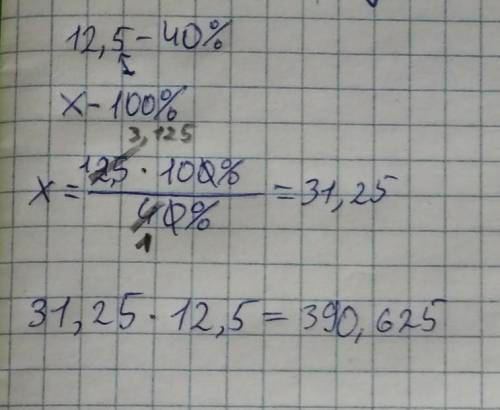 12,5 - 40%
x - 100%
3,125
x = 12,5 · 100% / 40% = 31,25
1
31,25 · 12,5 = 390,625